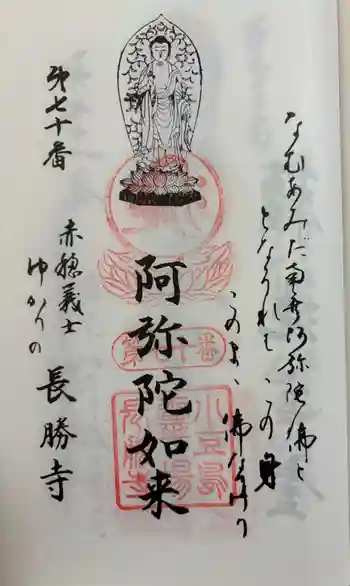 なむあみだ南無阿弥陀佛と
となうれど この身
このまゝ 佛なけり
阿弥陀如来
第七十番
小豆島
霊場
長勝寺
第七十番
赤穂義士
ゆかりの
長勝寺